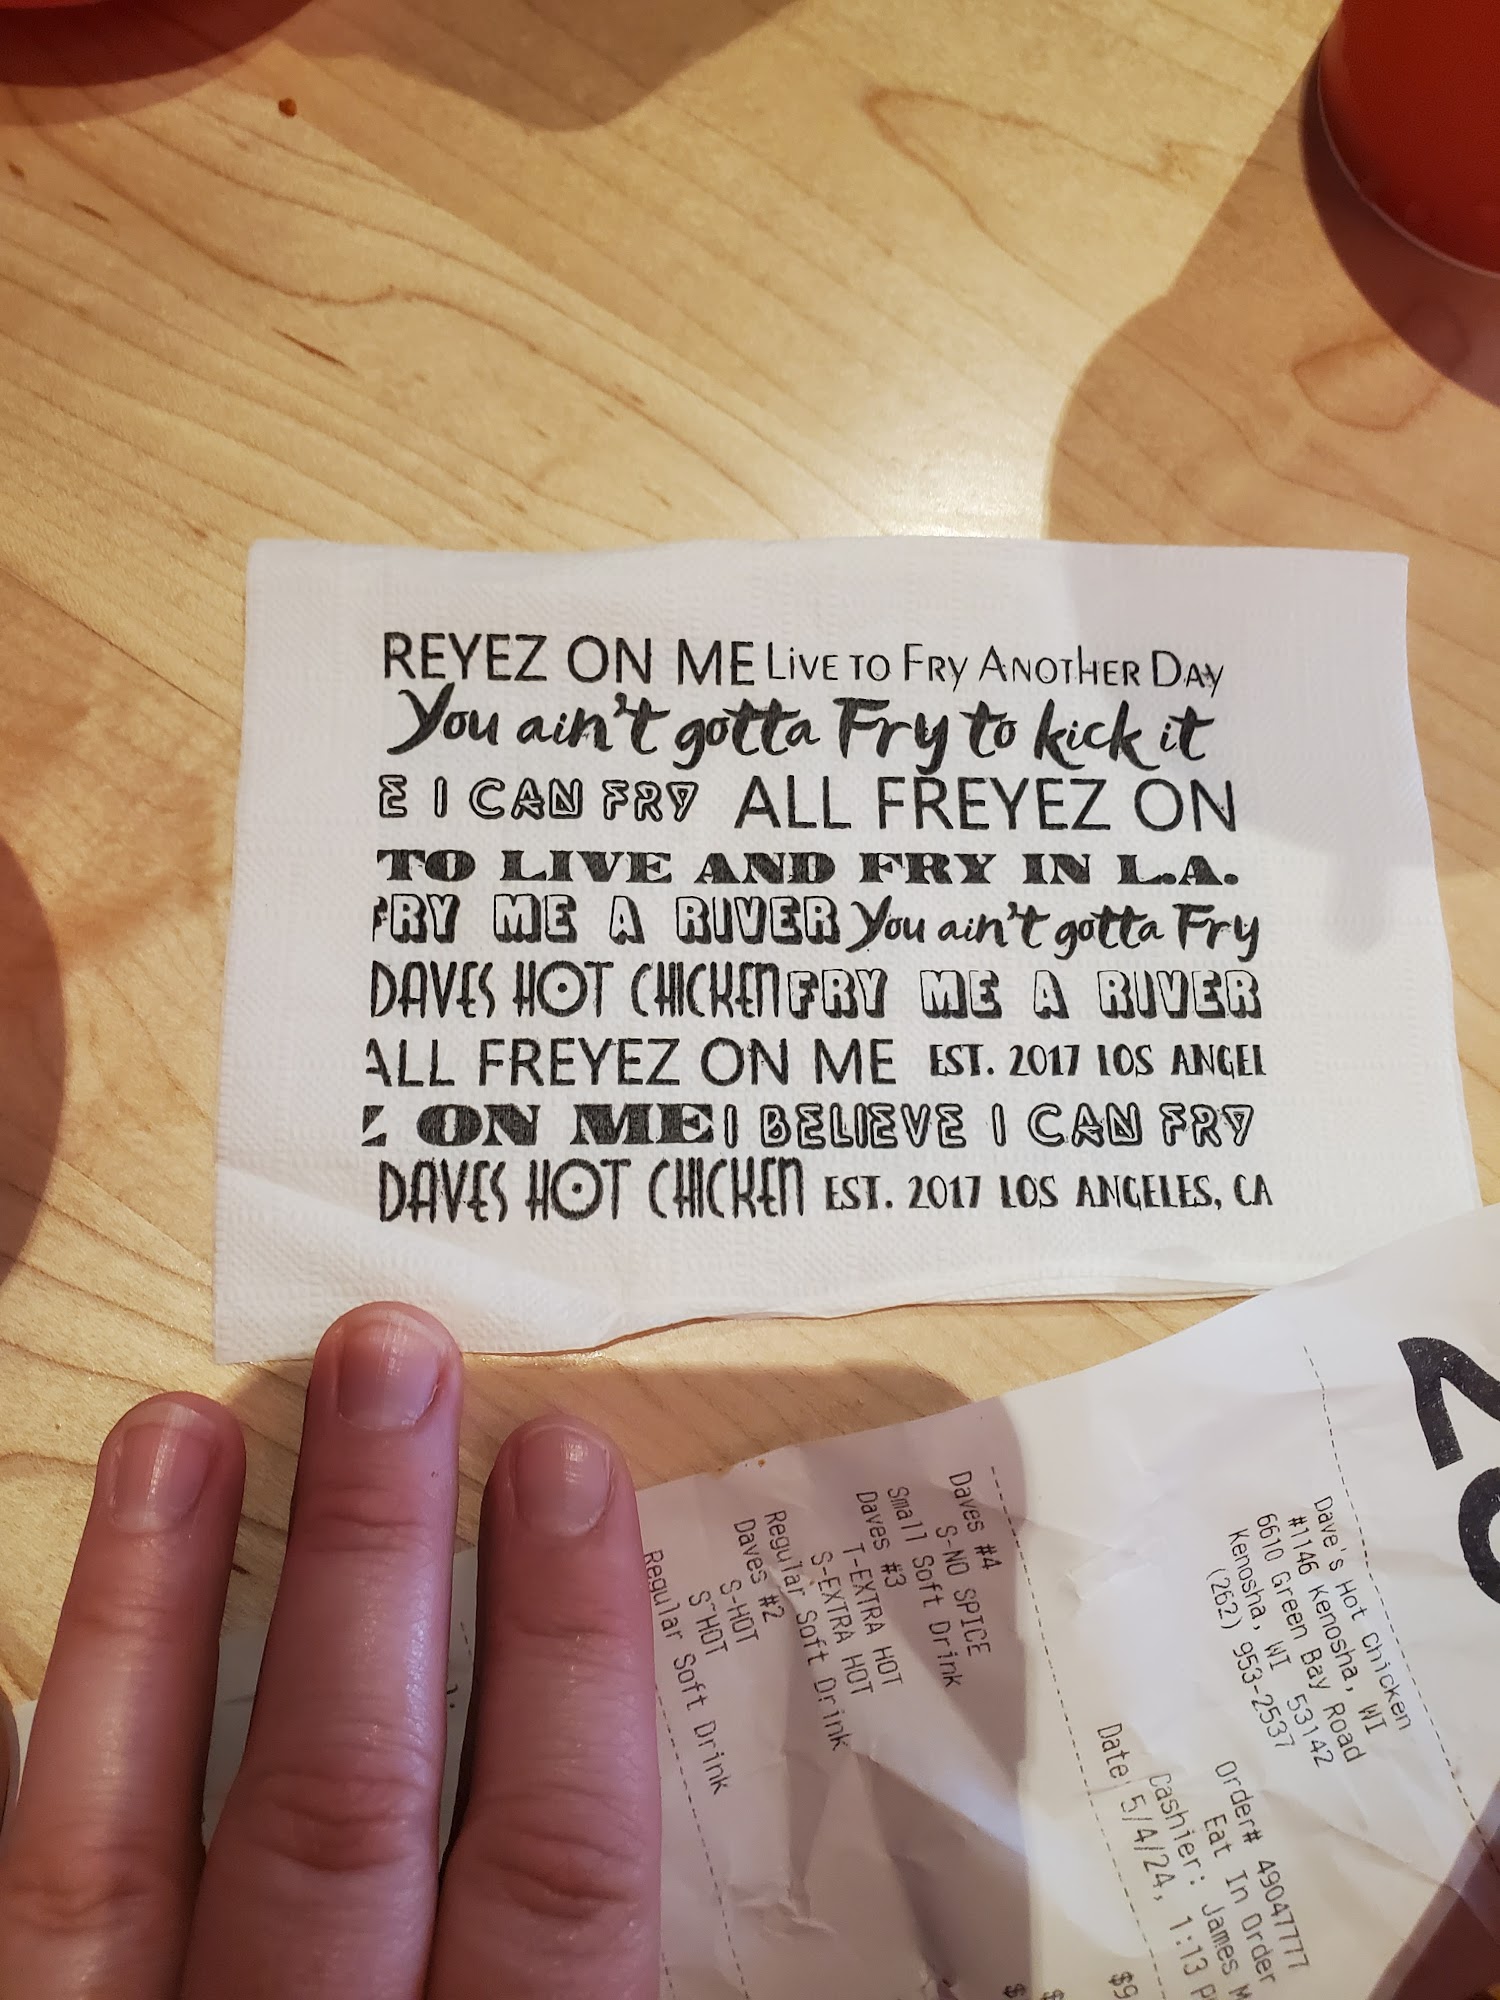 REYEZ ON ME LiVE TO FRy ANOTHER DAy
You ain't gotta Fry to kick it
E I CAN FRY ALL FREYEZ ON
TO LIVE AND FRY IN L.A.
FRY ME A RIVER You ain't gotta Fry
DAVES HOT CHICKEN FRY ME A RIVER
ALL FREYEZ ON ME EST. 2017 LOS ANGEL
Z ON ME I BELIEVE I CAN FRY
DAVES HOT CHICKEN EST. 2017 LOS ANGELES, CA
Dave's Hot Chicken
#1146 Kenosha, WI
6610 Green Bay Road
Kenosha, WI 53142
(262) 953-2537
Order# 49047777
Eat In Order
Cashier: James M
Date 5/4/24, 1:13 P
Daves #4
S-NO SPICE
Small Soft Drink
Daves #3
T-EXTRA HOT
S-EXTRA HOT
Regular Soft Drink
Daves #2
S-HOT
S-HOT
Regular Soft Drink
$9
$
$